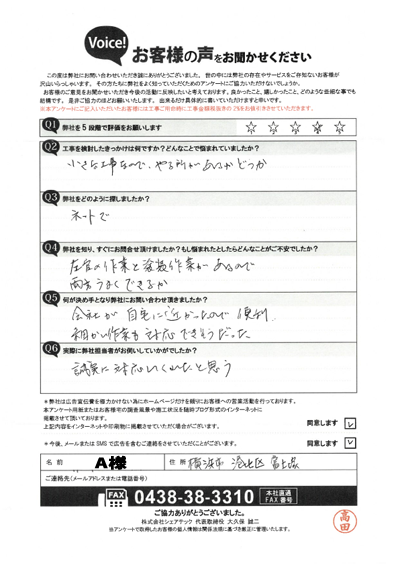 Voice!
お客様の声をお聞かせください
この度は弊社にお問い合わせいただき誠にありがとうございました。世の中には弊社の存在やサービスをご存知ないお客様が
沢山いらっしゃいます。その方たちに弊社をよく知っていただくためのアンケートにご協力いただけないでしょうか。
お客様のご意見をお聞かせいただき今後の活動に反映したいと考えております。良かったこと、嬉しかったこと、どのような些細な事でも
結構です。是非ご協力のほどお願いいたします。出来るだけ具体的に書いていただけますと幸いです。
Q1 弊社を5段階で評価をお願いします ☆ ☆ ☆ ☆ ☆
Q2 工事を検討したきっかけは何ですか？どんなことで悩まれていましたか？
小さな工事なので、やる所があるかどうか
Q3 弊社をどのように探しましたか？
ネットで
Q4 弊社を知り、すぐにお問合せ頂けましたか？もし悩まれたとしたらどんなことがご不安でしたか？
左官の作業と塗装作業があるので
両方うまくできるか
Q5 何が決め手となり弊社にお問い合わせ頂きましたか？
会社が自宅に近かったので便利
細かい作業も対応できそうだった
Q6 実際に弊社担当者がお伺いしていかがでしたか？
誠実に対応してくれたと思う
＊弊社は広告宣伝費を極力かけない為にホームページだけを頼りにお客様への営業活動を行っております。
本アンケート用紙またはお客様宅の調査風景や施工状況を随時ブログ形式のインターネットに
掲載させて頂いております。
上記内容をインターネットや印刷物に掲載させていただく場合がございます。 同意します ✓
＊今後、メールまたはSMSで広告を含むご連絡をさせていただくことがございます。 同意します ✓
名前 A様 住所 横浜市 港北区 富士塚
ご連絡先（メールアドレスまたは電話番号）
FAX 0438-38-3310 本社直通 FAX番号
ご協力ありがとうございました。
株式会社シェアテック 代表取締役 大久保 誠二
※アンケートで取得したお客様の個人情報は関係法規に基づき厳正に管理いたします。
高田